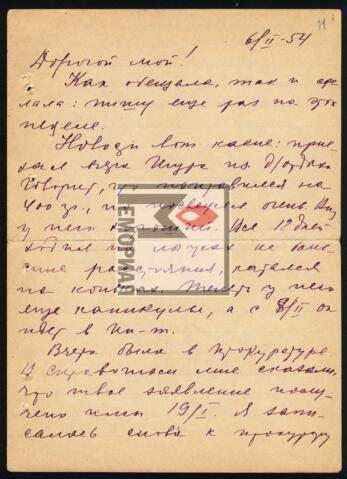 11
6/II-54
Дорогой мой!
Как обещала, так и сде-
лала: пишу еще раз на этой
неделе.
Новости вот какие: прие-
хал вчера Шура из д/отдыха
Говорит, что поправился на
400 гр., но
у него
МЕМОРИАЛ
Все 12 дней
ходил на лыжах на боль-
шие расстояния, катался
на коньках. Теперь у него
еще каникулы, а с 8/II он
идет в Ин-т.
Вчера была в прокуратуре.
В справочном мне сказали,
что твое заявление полу-
чено ими 19/I. Я запи-
салась снова к прокурору